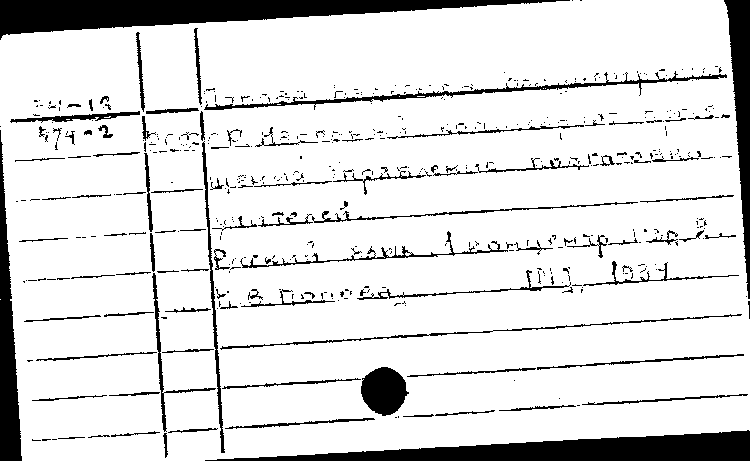 34-13
574-2
Попова, Владимировна
РСФСР. Народный комиссариат просв
щения Управление подготовки
учителей.
Русский язык. 1 концентр.
Н. В. Попова. [М], 1934